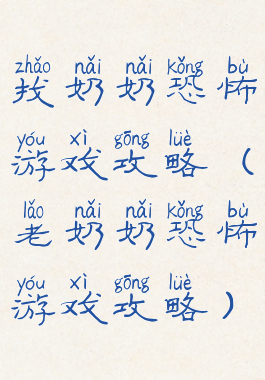 zhǎo nǎi nǎi kǒng bù
找奶奶恐怖
yóu xì gōng lüè
游戏攻略（
lǎo nǎi nǎi kǒng bù
老奶奶恐怖
yóu xì gōng lüè
游戏攻略）